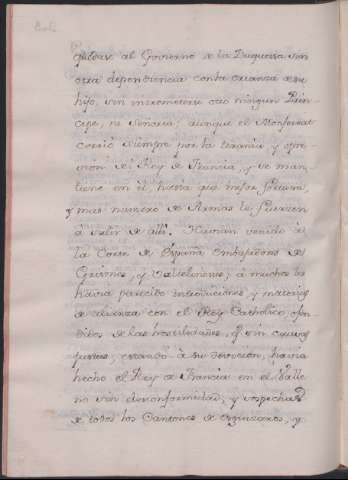 al Govierno de la Duquesa sin
otra dependiencia con la crianza de su
hijo, sin intrometerse otro ningun Prin-
cipe, ni Señoria; aunque el Monferrat
corrió siempre por la tirania, y opre-
sion del Rey de Francia, y se man-
tiene en él, hasta que mejor fortuna,
y mas numero de Armas le fuercen
á salir de allí. Havian venido á
la Corte de España Embaxadores de
Grisones, y Valtelinos; á muchos les
havia parecido introduciones, y materias
de alianza con el Rey Catholico, ofen-
didos de las hostilidades, q.e sin causas
justas, estando á su devocion, havia
hecho el Rey de Francia en el Valle
no sin disconformidad, y sospechas
de todos los Cantones de Esguizaros, y